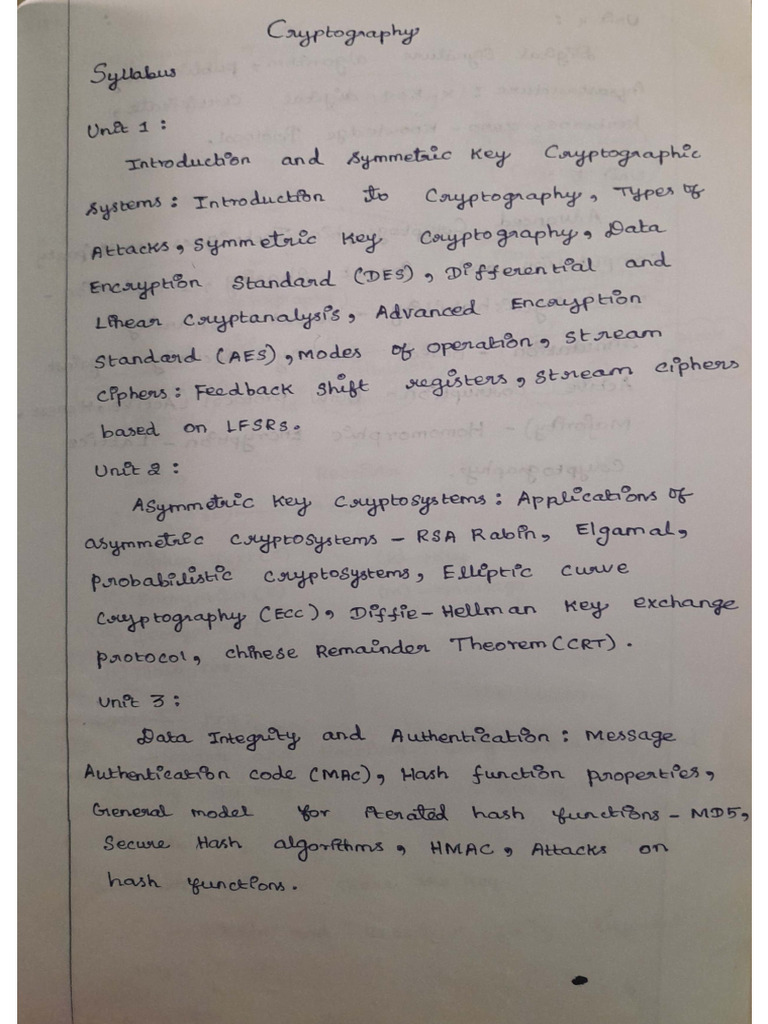 Cryptography
Syllabus
Unit 1 :
Introduction and Symmetric Key Cryptographic
Systems : Introduction to Cryptography, Types of
Attacks, Symmetric Key Cryptography, Data
Encryption Standard (DES), Differential and
Linear Cryptanalysis, Advanced Encryption
Standard (AES), Modes of operation, Stream
Ciphers : Feedback Shift registers, Stream Ciphers
based on LFSRs.
Unit 2 :
Asymmetric Key Cryptosystems : Applications of
asymmetric Cryptosystems - RSA Rabin, Elgamal,
Probabilistic Cryptosystems, Elliptic Curve
Cryptography (ECC), Diffie-Hellman Key exchange
Protocol, Chinese Remainder Theorem (CRT).
Unit 3 :
Data Integrity and Authentication : Message
Authentication code (MAC), Hash function properties,
General model for iterated hash functions - MD5,
Secure Hash algorithms, HMAC, Attacks on
hash functions.